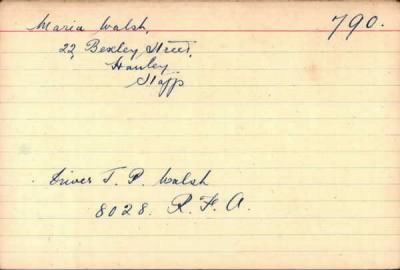 Maria Walsh, 790.
22, Bexley Street,
Hanley
Staffs
Driver T. P. Walsh
8028. R. F. A.